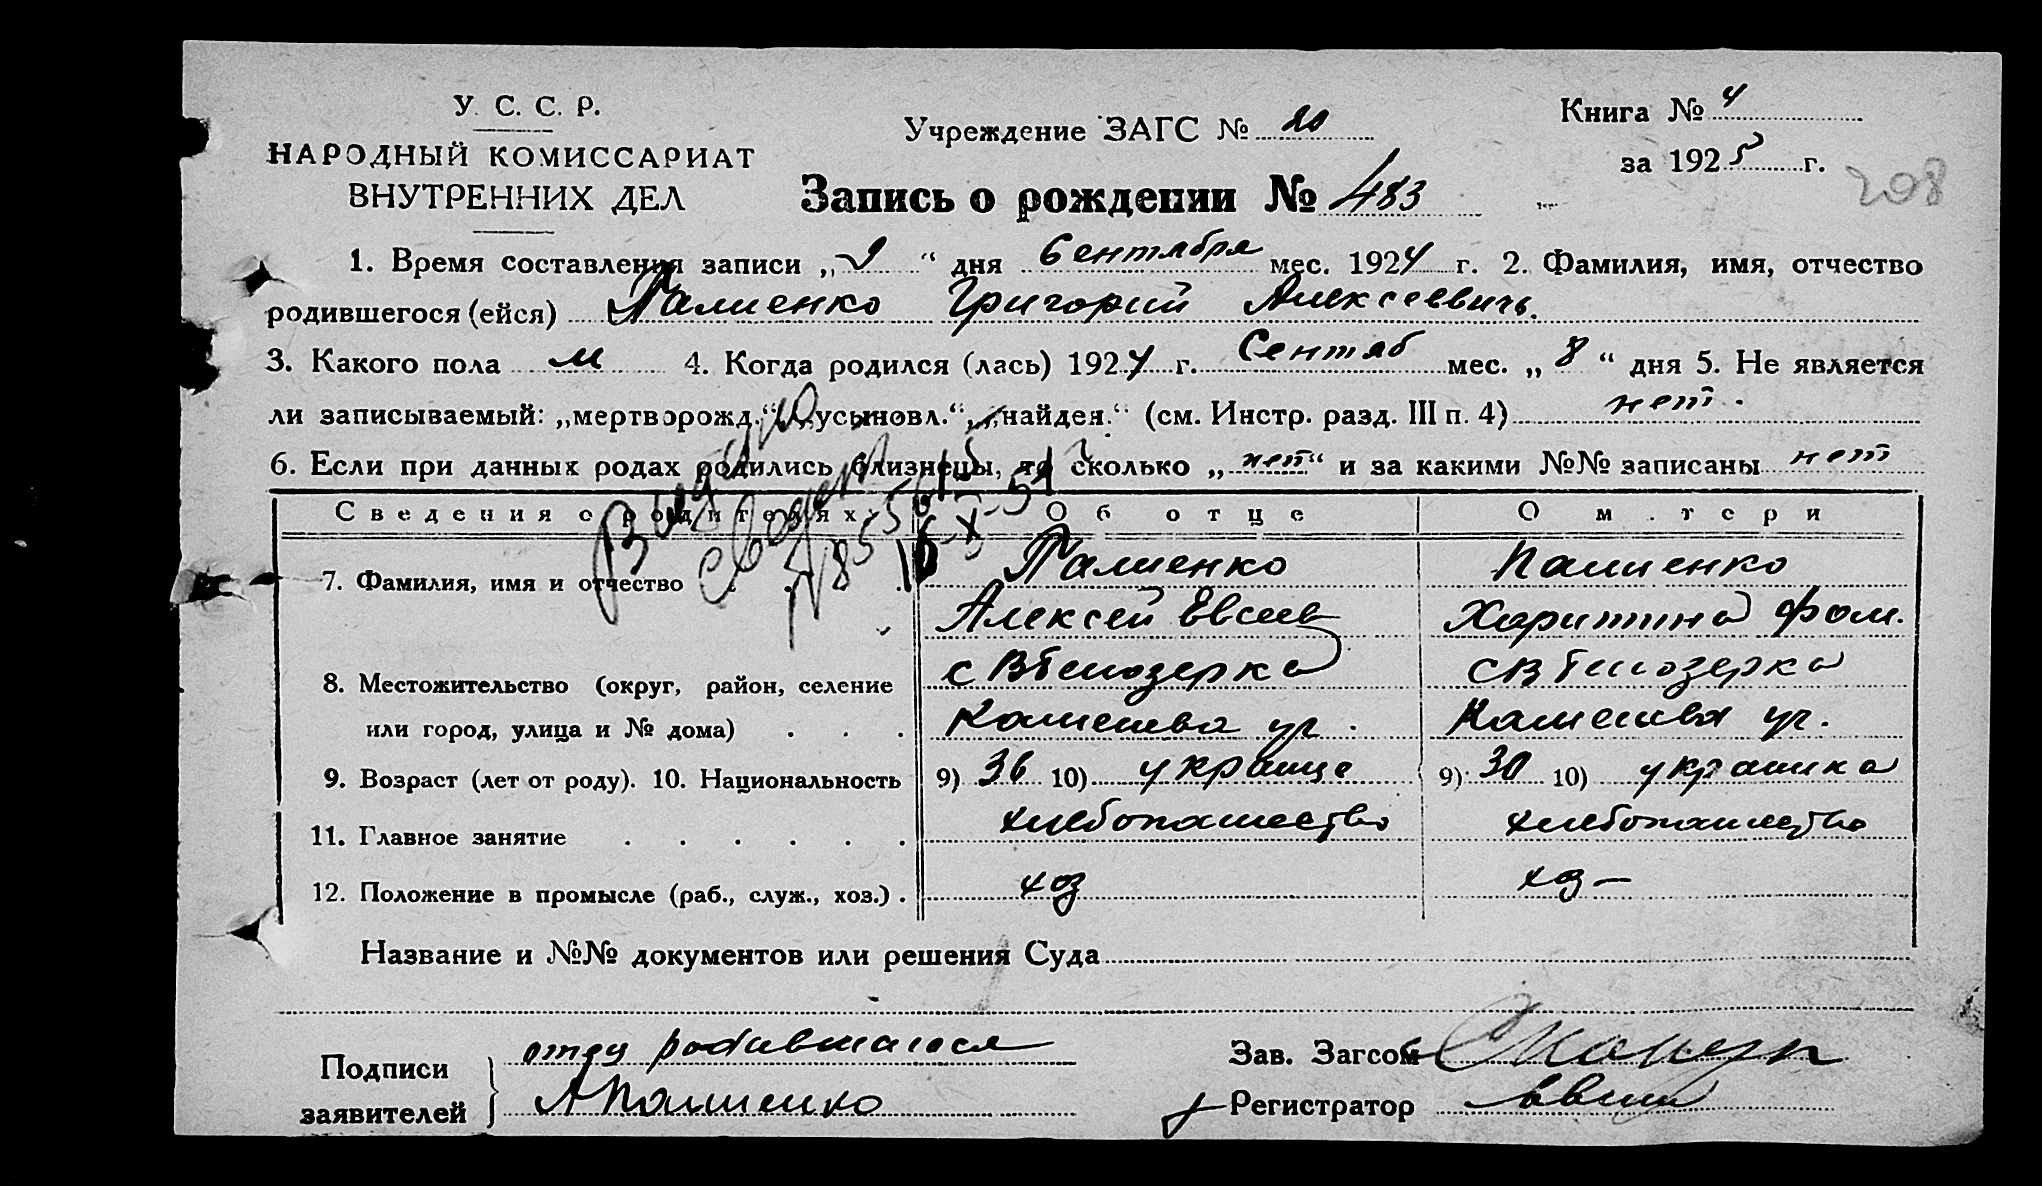 У. С. С. Р.
НАРОДНЫЙ КОМИССАРИАТ
ВНУТРЕННИХ ДЕЛ
Учреждение ЗАГС № 20
Книга № 4
за 1925 г.
208
Запись о рождении № 483
1. Время составления записи „9“ дня Сентября мес. 1924 г. 2. Фамилия, имя, отчество
родившегося (ейся) Палиенко Григорий Алексеевичъ.
3. Какого пола м 4. Когда родился (лась) 1924 г. Сентяб мес. „8“ дня 5. Не является
ли записываемый: „мертворожд.“, „усыновл.“, „найден.“ (см. Инстр. разд. III п. 4) нет.
6. Если при данных родах родились близнецы, то сколько „нет“ и за какими №№ записаны нет
Сведения о родителях Об отце О матери
7. Фамилия, имя и отчество Палиенко Палиенко
Алексей Евсеев Харитина Фом.
8. Местожительство (округ, район, селение с Вбелозерка с Вбелозерка
или город, улица и № дома)
9. Возраст (лет от роду). 10. Национальность 9) 36 10) украинце 9) 30 10) украинка
11. Главное занятие хлебопашество хлебопашество
12. Положение в промысле (раб., служ., хоз.) хоз хоз –
Название и №№ документов или решения Суда
Подписи заявителей отец родившагося
А Палиенко
Зав. Загсом
Регистратор